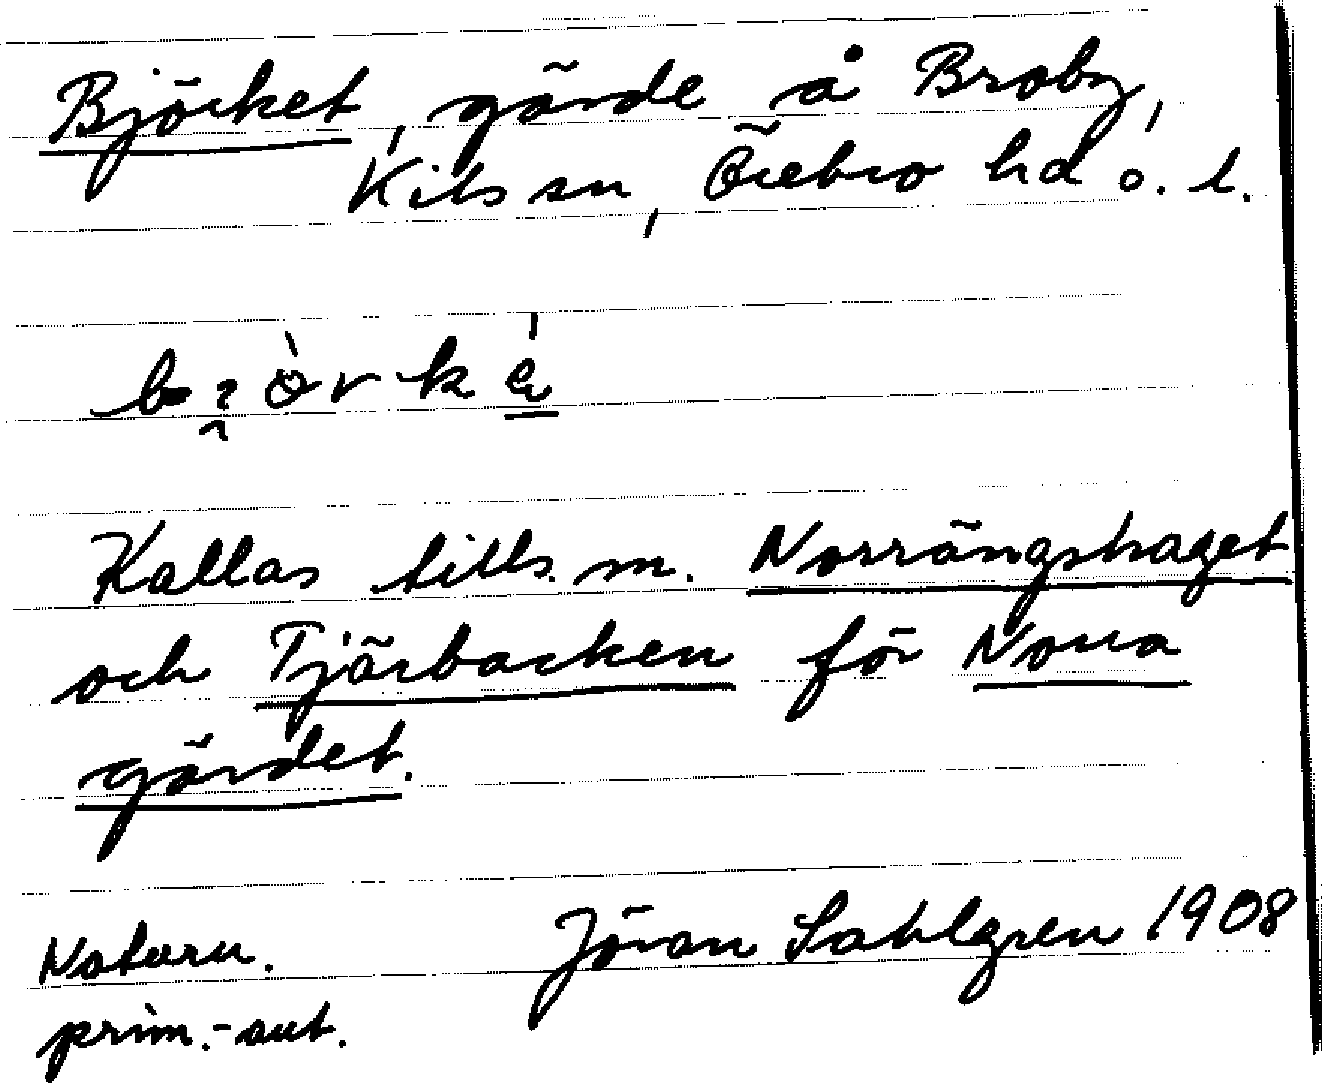 Björket, gärde å Broby,
Kils sn, Örebro hd ö. l.
Kallas tills. m. Norrängshaget
och Tjärbacken för Norra
gärdet.
Naturn.
Jöran Sahlgren 1908
prim.-aut.